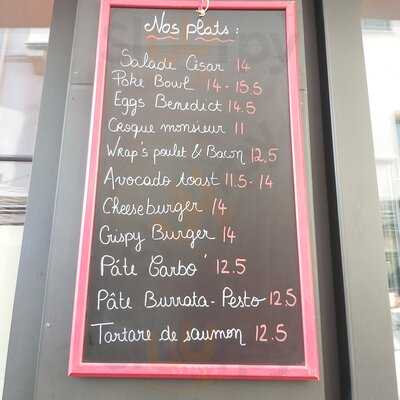 Nos plats :
Salade César 14
Poke Bowl 14 - 15.5
Eggs Benedict 14.5
Croque monsieur 11
Wrap's poulet & Bacon 12,5
Avocado toast 11.5 - 14
Cheeseburger 14
Crispy Burger 14
Pâte Carbo' 12.5
Pâte Burrata - Pesto 12.5
Tartare de saumon 12.5